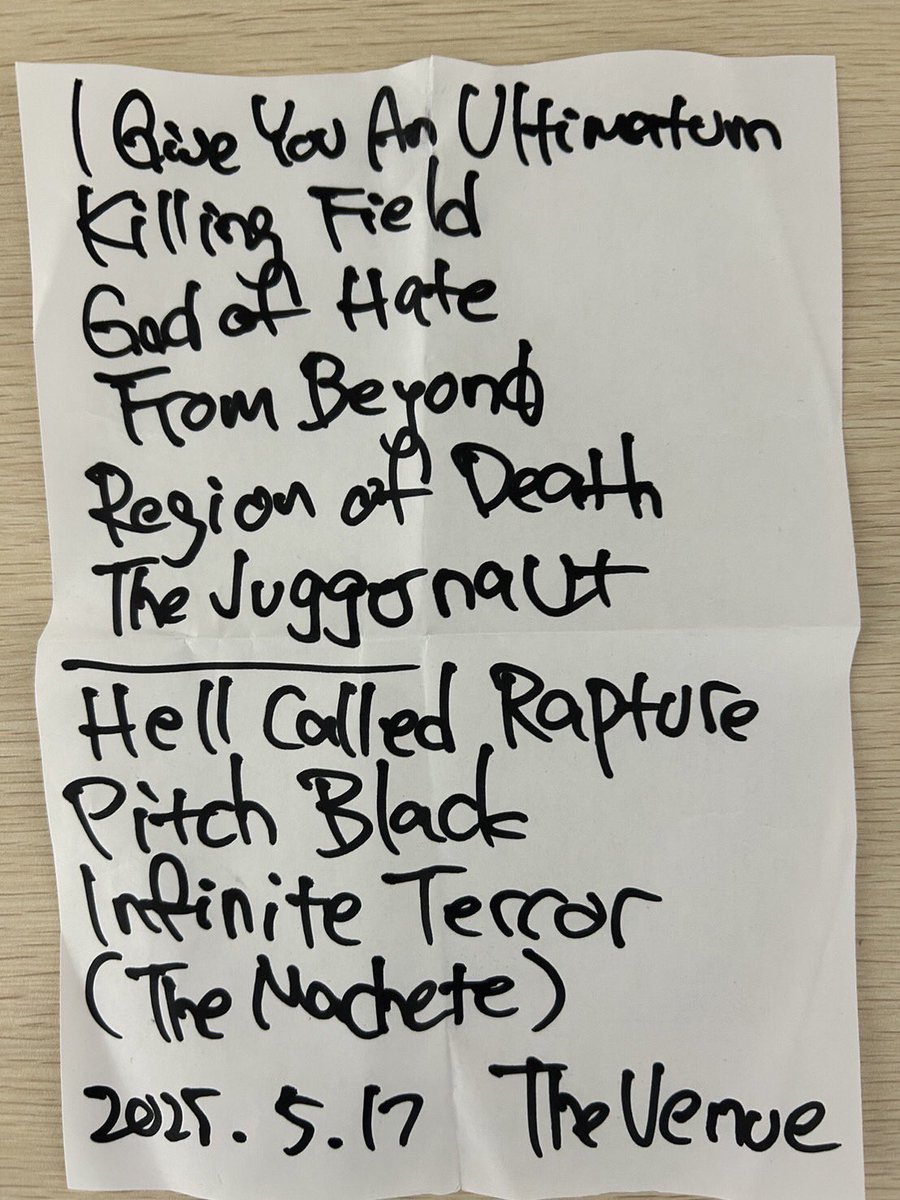 I Give You An Ultimatum
Killing Field
God of Hate
From Beyond
Region of Death
The Juggernaut
Hell Called Rapture
Pitch Black
Infinite Terror
(The Machete)
2025. 5.17 The Venue